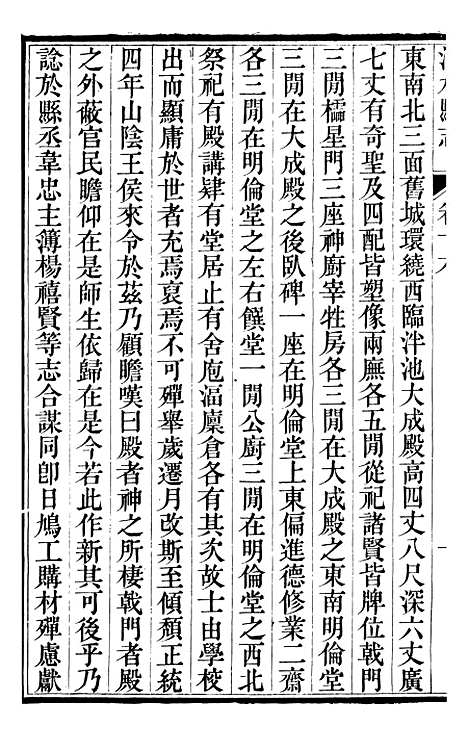 東南北三面舊城環繞西臨泮池大成殿高四丈八尺深六丈廣
七丈有奇聖及四配皆塑像兩廡各五閒從祀諸賢皆牌位戟門
三閒櫺星門三座神廚宰牲房各三閒在大成殿之東南明倫堂
三閒在大成殿之後臥碑一座在明倫堂上東偏進德修業二齋
各三閒在明倫堂之左右饌堂一閒公廚三閒在明倫堂之西北
祭祀有殿講肄有堂居止有舍庖湢廩倉各有其次故士由學校
出而顯庸於世者充焉裒焉不可殫舉歲遷月改斯至傾頹正統
四年山陰王侯來令於茲乃顧瞻嘆曰殿者神之所棲戟門者殿
之外蔽官民瞻仰在是師生依歸在是今若此作新其可後乎乃
諗於縣丞韋忠主簿楊禧賢等志合謀同卽日鳩工購材殫慮獻